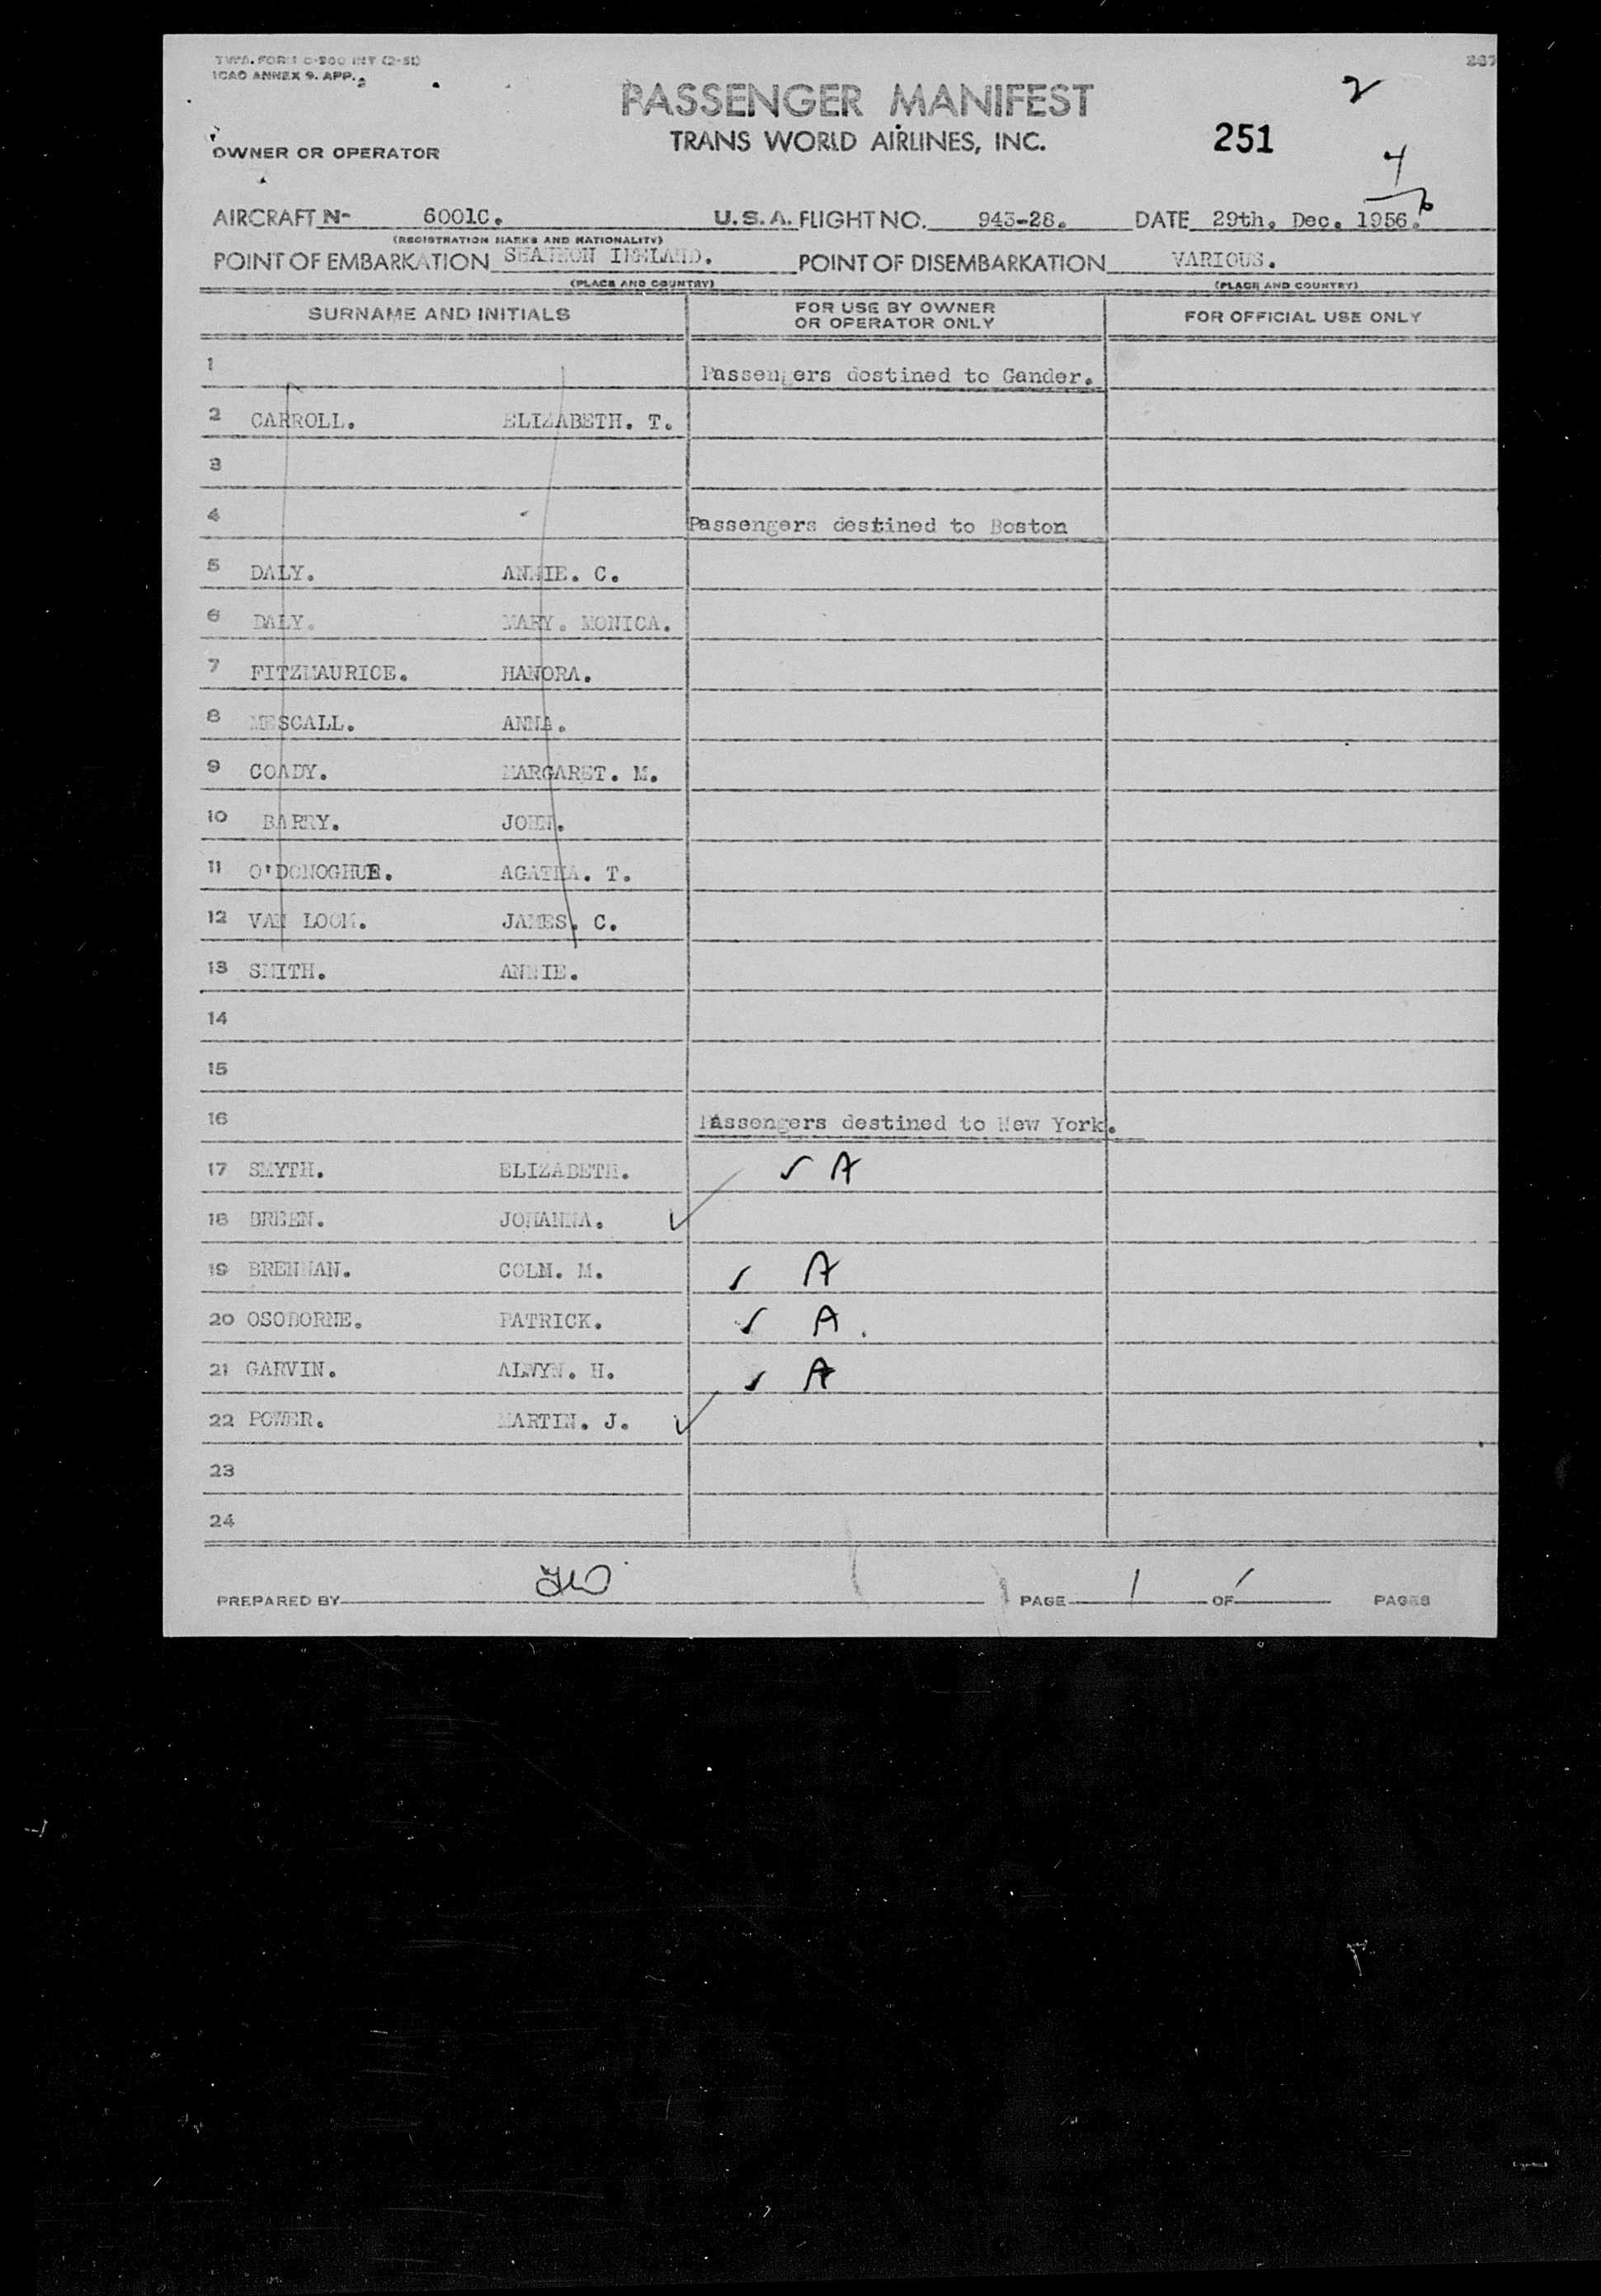 TWA. FORM O-900 INT (2-51)
ICAO ANNEX 9. APP. 2
PASSENGER MANIFEST
2
TRANS WORLD AIRLINES, INC.
251
OWNER OR OPERATOR
4
AIRCRAFT N- 6001C. U.S.A. FLIGHT NO. 943-28. DATE 29th. Dec. 1956.
(REGISTRATION MARKS AND NATIONALITY)
POINT OF EMBARKATION SHANNON IRELAND. POINT OF DISEMBARKATION VARIOUS.
(PLACE AND COUNTRY) (PLACE AND COUNTRY)
SURNAME AND INITIALS FOR USE BY OWNER OR OPERATOR ONLY FOR OFFICIAL USE ONLY
1 Passengers destined to Gander.
2 CARROLL. ELIZABETH. T.
3
4 Passengers destined to Boston
5 DALY. ANNIE. C.
6 DALY. MARY. MONICA.
7 FITZMAURICE. HANORA.
8 MESCALL. ANNA.
9 COADY. MARGARET. M.
10 BARRY. JOHN.
11 O'DONOGHUE. AGATHA. T.
12 VAN LOON. JAMES. C.
13 SMITH. ANNIE.
14
15
16 Passengers destined to New York.
17 SMYTH. ELIZABETH. ✓ A
18 BREEN. JOHANNA. ✓
19 BRENNAN. COLM. M. ✓ A
20 OSOBORNE. PATRICK. ✓ A.
21 GARVIN. ALWYN. H. ✓ A
22 POWER. MARTIN. J. ✓
23
24
PREPARED BY PAGE 1 OF 1 PAGES